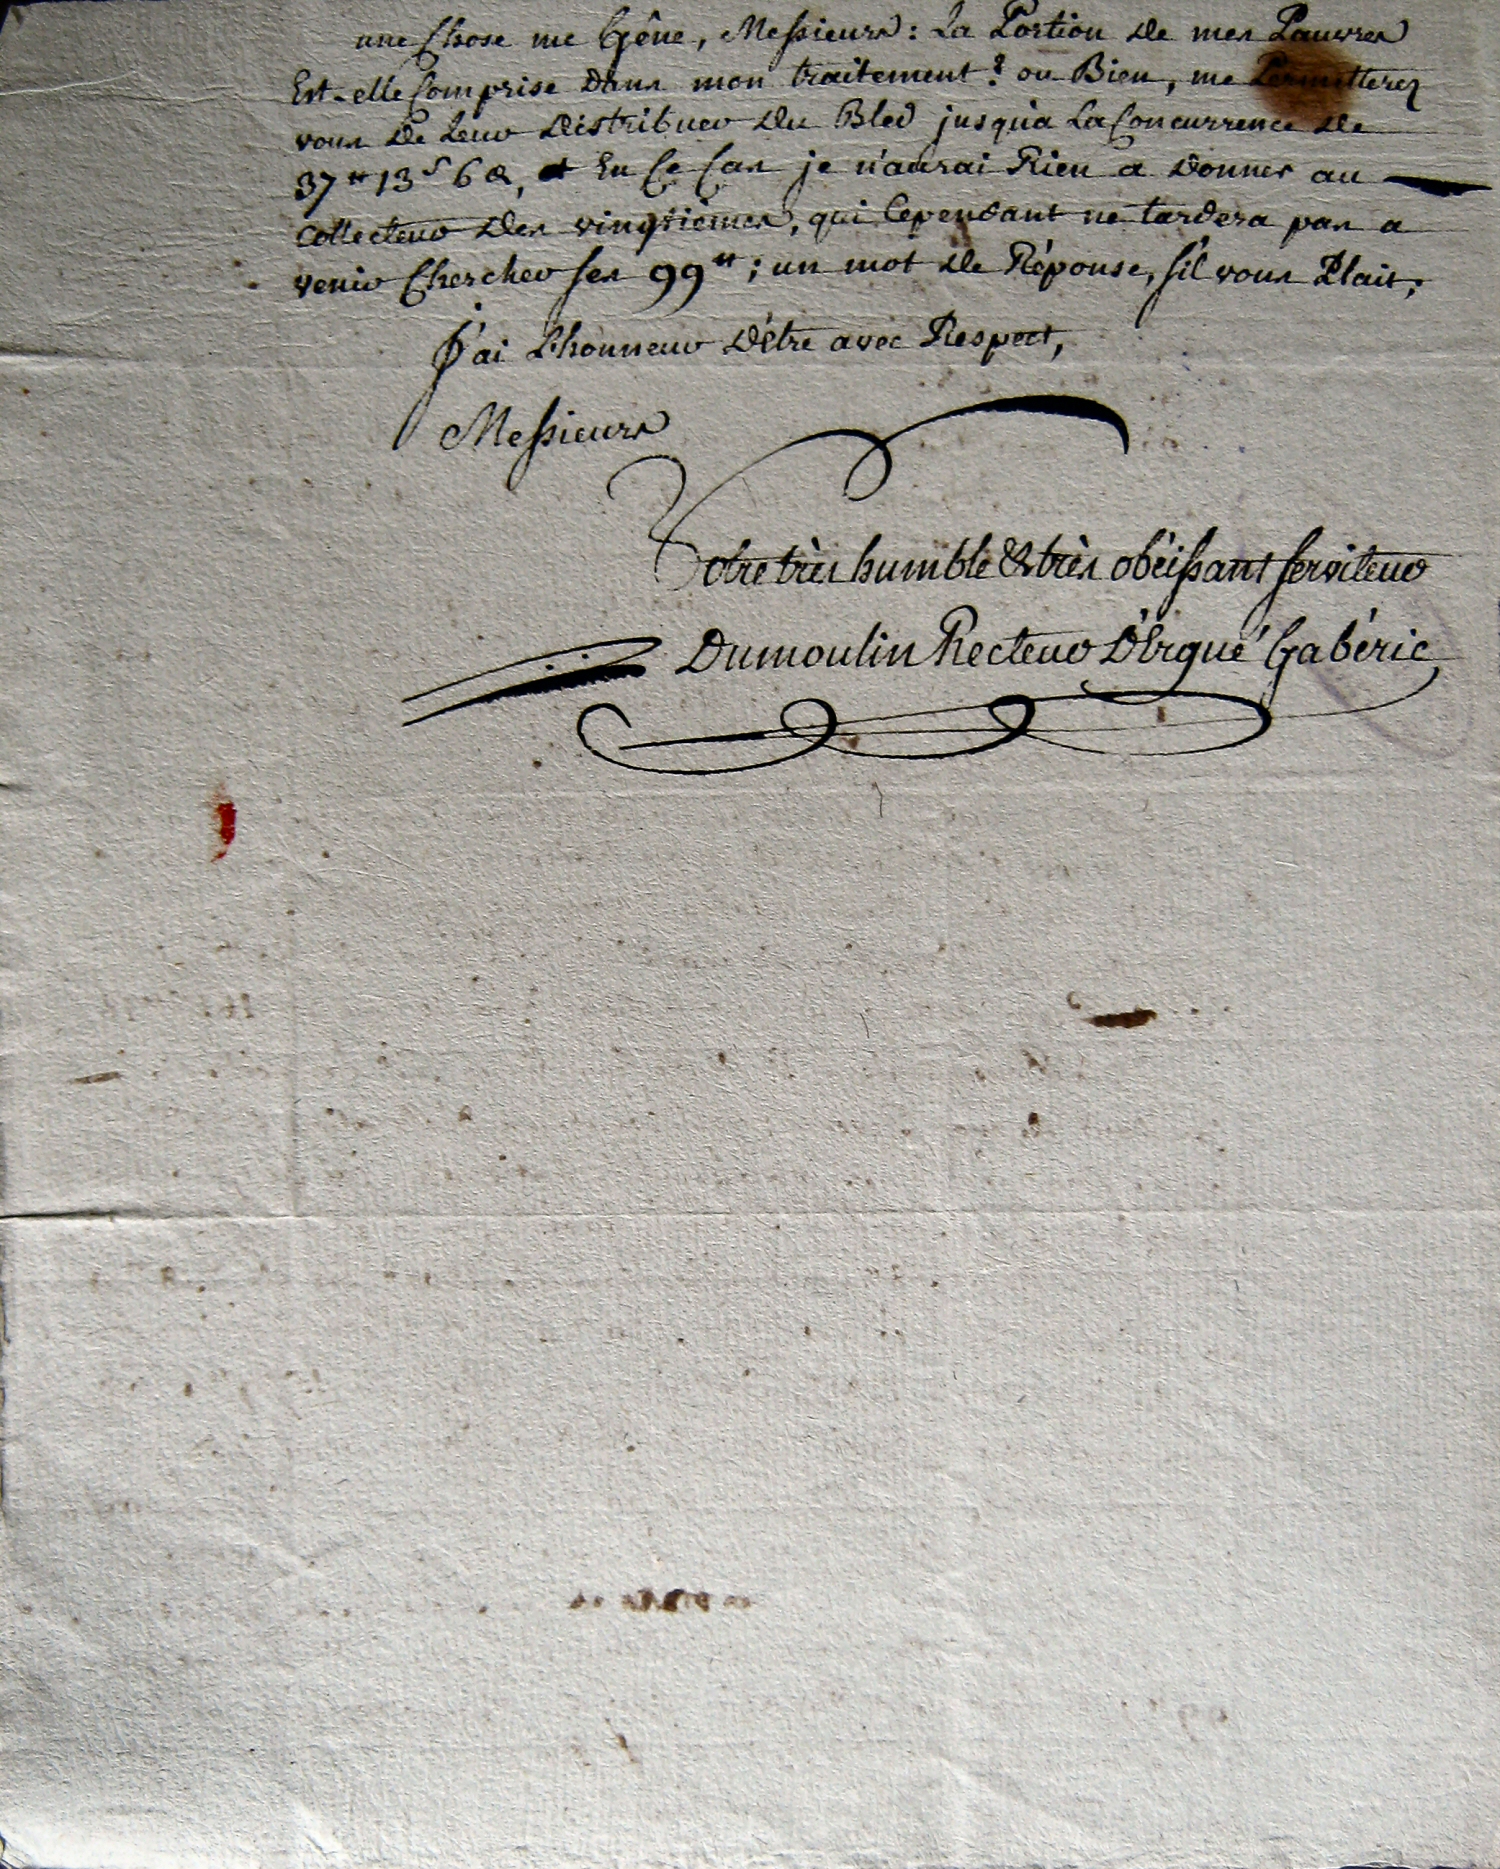 une Chose me Gêne, Messieurs : La Portion de mes Pauvres
Est-elle Comprise dans mon traitement ? ou Bien, me Permitterez
vous de Leur distribuer du Bled jusqu'a La Concurrence de
37tt 13s 6d, et En Ce Cas je n'aurai Rien a donner au
Collecteur des vingtiemes, qui Cependant ne tardera pas a
venir Chercher ses 99tt ; un mot de Réponse, s'il vous Plait ;
J'ai L'honneur d'être avec Respect,
Messieurs
Votre très humble & très obéissant serviteur
Dumoulin Recteur D'Ergué Gabéric